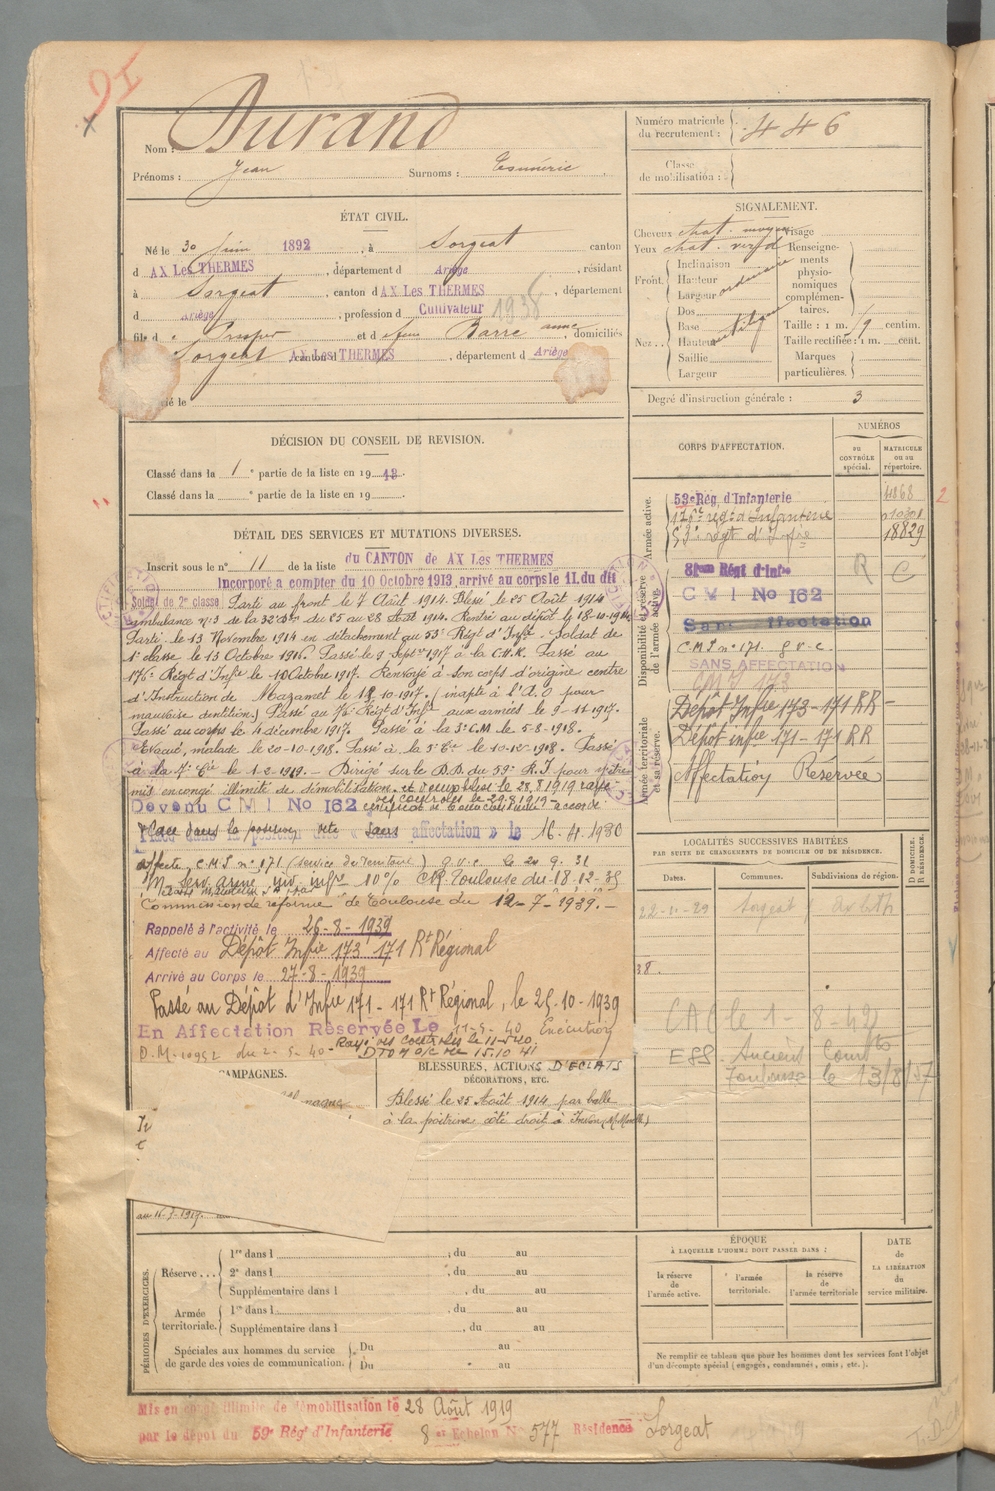 91
Nom : Durand
Prénoms : Jean Surnoms :
Numéro matricule du recrutement : 446
Classe de mobilisation :
ÉTAT CIVIL.
Né le 30 Juin 1892, à Sorgeat canton
d AX Les THERMES, département d Ariège, résidant
à Sorgeat, canton d AX Les THERMES, département
d Ariège, profession d Cultivateur 1938
fils d Prosper et d feue Barre anne, domiciliés
Sorgeat canton AX Les THERMES, département d Ariège
SIGNALEMENT.
Cheveux chat. moyen Visage
Yeux chat. verd Renseignements physionomiques complémentaires.
Front. Inclinaison
Hauteur ordinaire
Largeur
Dos
Nez. Base
Hauteur
Saillie
Largeur
Taille : 1 m. centim.
Taille rectifiée : 1 m. cent.
Marques particulières.
Degré d'instruction générale : 3
DÉCISION DU CONSEIL DE REVISION.
Classé dans la 1 e partie de la liste en 19
Classé dans la e partie de la liste en 19
DÉTAIL DES SERVICES ET MUTATIONS DIVERSES.
Inscrit sous le n° 11 de la liste du CANTON de AX Les THERMES
Incorporé a compter du 10 Octobre 1913, arrivé au corps le 11 du dit
Soldat de 2e classe Parti au front le 7 Août 1914. Blessé le 25 Août 1914
ambulance n° 3 de la 32e Don du 25 au 28 Août 1914. Rentré au dépôt le 18-10-1914
Parti le 13 Novembre 1914 en détachement au 53e Régt d'Infie. Soldat de
1e classe le 13 Octobre 1916. Passé le 9 Septre 1917 à la C.H.R. Passé au
176e Régt d'Infie le 10 Octobre 1917. Renvoyé à son corps d'origine centre
d'Instruction de Mazamet le 10.1917. (inapte à l'A.O pour
mauvaise dentition) Passé au 76e Régt d'Infie aux armées le 9-11-1917.
Passé au corps le 4 décembre 1917. Passé à la 3e C.M le 5-8-1918.
Evacué, malade le 20-10-1918. Passé à la 5e Cie le 10-12-1918. Passé
à la 7e Cie le 1-2-1919. - Dirigé sur le D.D. du 59e R.I pour être
mis en congé illimité de démobilisation et démobilisé le 28.8.1919 rayé
des contrôles le 29.8.1919
Devenu C M I No 162 certificat de bonne conduite accordé
Placé dans la position dite « Sans affectation » le 16-4-1930
Affecté C.M.I. n° 171 (service de Territoire) g.v.c. le 20 9. 31
serv. armé inv. infre 10% CR Toulouse du 18-12-35
Commission de réforme de Toulouse du 12-7-1939.-
Rappelé à l'activité le 26-8-1939
Affecté au Dépôt Infie 173 171 Rt Régional
Arrivé au Corps le 27-8-1939
Passé au Dépôt d'Infie 171-171 Rt Régional, le 25-10-1939
En Affectation Réservée Le 11-5-40 Exécution
D.M. 10952 du 2-5-40 - Rayé des contrôles le 11-5-40
CAMPAGNES.
BLESSURES, ACTIONS D'ECLATS
DÉCORATIONS, ETC.
Blessé le 25 Août 1914 par balle
à la poitrine côté droit à
CORPS D'AFFECTATION.
NUMÉROS
DU CONTRÔLE spécial.
MATRICULE ou au répertoire.
Armée active.
59e Rég. d'Infanterie 4868
176e régt d'Infanterie
53e régt d'Infie 18829
Disponibilité et réserve de l'armée active.
81me Régt d'Infie R C
C M I No 162
Sans affectation
C.M.I. n° 171 g-v-c
SANS AFFECTATION
CMI 173
Armée territoriale et sa réserve.
Dépôt Infie 173-171 RR
Dépôt infie 171-171 RR
Affectation Réservée
LOCALITÉS SUCCESSIVES HABITÉES
PAR SUITE DE CHANGEMENTS DE DOMICILE OU DE RÉSIDENCE.
Dates. Communes. Subdivisions de région.
D DOMICILE. R RÉSIDENCE.
Sorgeat
38.
CAC le 1- 8-42
Toulouse le 13/8/57
PÉRIODES D'EXERCICES.
Réserve... 1re dans l ; du au
2e dans l ; du au
Supplémentaire dans l , du au
Armée territoriale. 1re dans l , du au
Supplémentaire dans l , du au
Spéciales aux hommes du service de garde des voies de communication. Du au
Du au
ÉPOQUE
À LAQUELLE L'HOMME DOIT PASSER DANS :
la réserve de l'armée active.
l'armée territoriale.
la réserve de l'armée territoriale
DATE de LA LIBÉRATION du service militaire.
Ne remplir ce tableau que pour les hommes dont les services font l'objet
d'un décompte spécial (engagés, condamnés, omis, etc.).
Mis en congé illimité de démobilisation le 28 Août 1919
par le dépôt du 59e Rég' d'Infanterie 8 e Echelon N° 577 Résidence Sorgeat